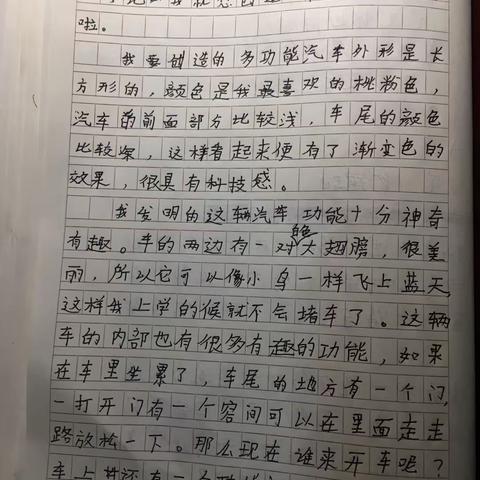 啦。
我要创造的多功能汽车外形是长
方形的，颜色是我最喜欢的桃粉色，
汽车的前面部分比较浅，车尾的颜色
比较深，这样看起来便有了渐变色的
效果，很具有科技感。
我发明的这辆汽车功能十分神奇
有趣。车的两边有一对白色大翅膀，很美
丽，所以它可以像小鸟一样飞上蓝天，
这样我上学的候就不会堵车了。这辆
车的内部也有很多有趣的功能，如果
在车里坐累了，车尾的地方有一个门，
一打开门有一个容间可以在里面走走
路放松一下。那么现在谁来开车呢？
车上其还有一个